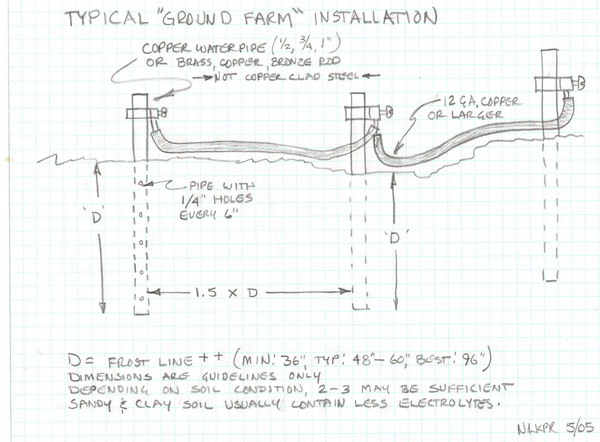 TYPICAL "GROUND FARM" INSTALLATION
COPPER WATER PIPE (1/2, 3/4, 1")
OR BRASS, COPPER, BRONZE ROD
→NOT COPPER CLAD STEEL←
12 GA. COPPER
OR LARGER
PIPE WITH
1/4" HOLES
EVERY 6"
'D'
'D'
1.5 X D
D = FROST LINE ++ (MIN: 36", TYP: 48"-60", BEST: 96")
DIMENSIONS ARE GUIDELINES ONLY
DEPENDING ON SOIL CONDITION, 2-3 MAY BE SUFFICIENT
SANDY & CLAY SOIL USUALLY CONTAIN LESS ELECTROLYTES.
NLKPR 5/05